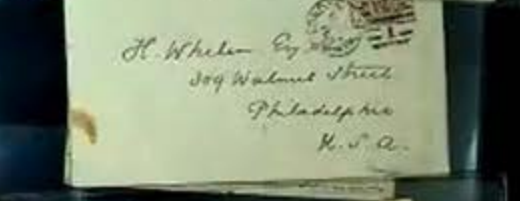 H. Whelen Esq
309 Walnut Street
Philadelphia
U. S. A.